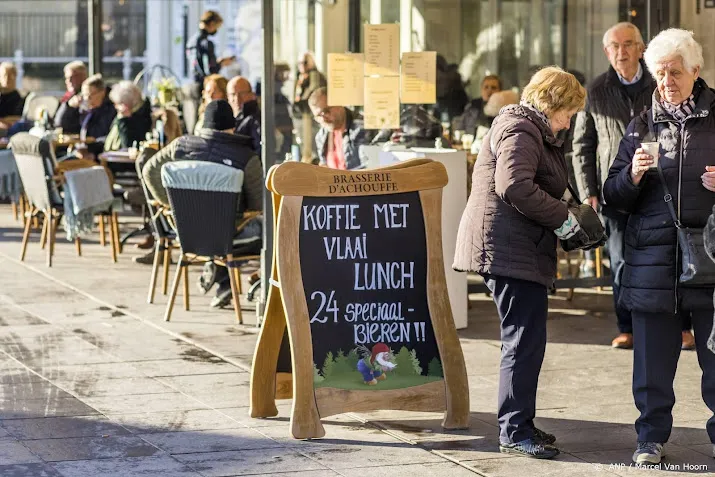 BRASSERIE
D'ACHOUFFE
KOFFIE MET
VLAAI
LUNCH
24 SPECIAAL-
BIEREN!!
© ANP / Marcel Van Hoorn